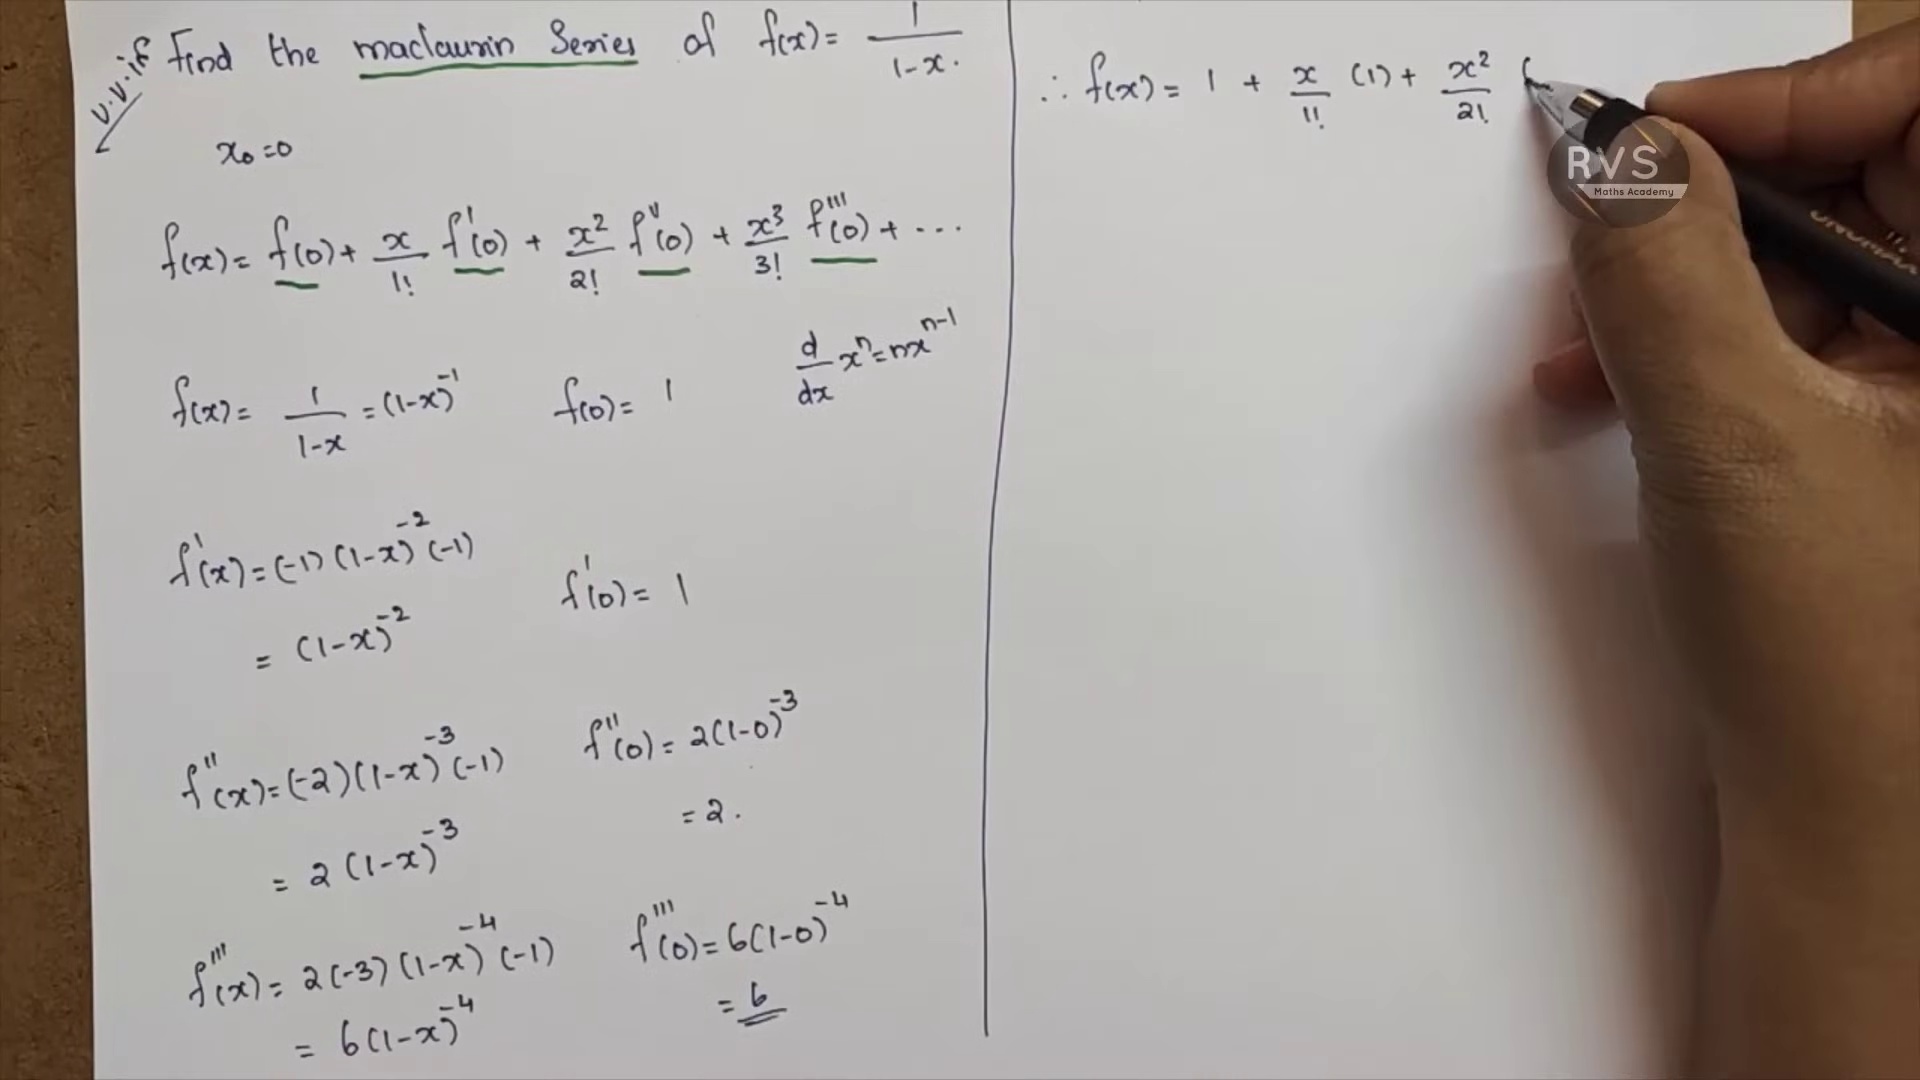 V.V.if Find the maclaurin Series of f(x) = 1/1-x.
x₀=0
f(x) = f(0) + x/1! f'(0) + x²/2! f''(0) + x³/3! f'''(0) + ...
d/dx xⁿ = nxⁿ⁻¹
f(x) = 1/1-x = (1-x)⁻¹ f(0) = 1
f'(x) = (-1)(1-x)⁻²(-1)
= (1-x)⁻² f'(0) = 1
f''(x) = (-2)(1-x)⁻³(-1) f''(0) = 2(1-0)⁻³
= 2(1-x)⁻³ = 2.
f'''(x) = 2(-3)(1-x)⁻⁴(-1) f'''(0) = 6(1-0)⁻⁴
= 6(1-x)⁻⁴ = 6
∴ f(x) = 1 + x/1! (1) + x²/2! (
RVS
Maths Academy